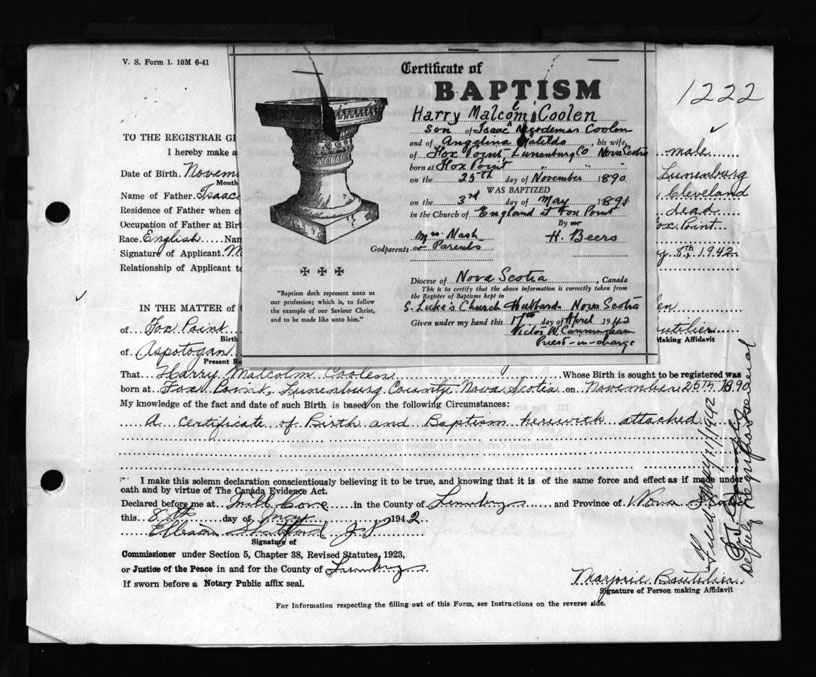 V. S. Form 1. 10M 6-41
1222
TO THE REGISTRAR GE
I hereby make a
male
Date of Birth. Novem
Month
Lunenburg
Name of Father. Isaac
Cleveland
Residence of Father when c
Dead
Occupation of Father at Birt
Fox Point
Race. English Nam
Signature of Applicant. M
y 8th 1942
Relationship of Applicant to
Certificate of
BAPTISM
Harry Malcom Coolen
son of Isaac Nicodemus Coolen
and of Angelina Matilda, his wife,
of Fox Point Lunenburg Co Nova Scotia
born at Fox Point " "
on the 25th day of November 1890
WAS BAPTIZED
on the 3rd day of May 1891
in the Church of England at Fox Point
By
Mrs Nash H. Beers
Godparents or Parents
Diocese of Nova Scotia, Canada
This is to certify that the above information is correctly taken from
the Register of Baptisms kept in
S. Luke's Church Hubbards Nova Scotia
Given under my hand this 17th day of April 1942
Victor W. Cunningham
Priest-in-charge
"Baptism doth represent unto us
our profession; which is, to follow
the example of our Saviour Christ,
and to be made like unto him."
IN THE MATTER of
len
of Fox Point
Birth
Making Affidavit
of Aspotogan
Present Re
That Harry Malcolm Coolen Whose Birth is sought to be registered was
born at Fox Point, Lunenburg County Nova Scotia on November 25th 1890
My knowledge of the fact and date of such Birth is based on the following Circumstances:
A certificate of Birth and Baptism herewith attached
I make this solemn declaration conscientiously believing it to be true, and knowing that it is of the same force and effect as if made under
oath and by virtue of The Canada Evidence Act.
Declared before me at Mill Cove in the County of Lunenburg and Province of Nova Scotia
this 8th day of May 1942
Signature of
Commissioner under Section 5, Chapter 38, Revised Statutes, 1923,
or Justice of the Peace in and for the County of Lunenburg
If sworn before a Notary Public affix seal.
Marjorie Boutilier
Signature of Person making Affidavit
For Information respecting the filling out of this Form, see Instructions on the reverse side.
Filed May 11/1942
Deputy Registrar General